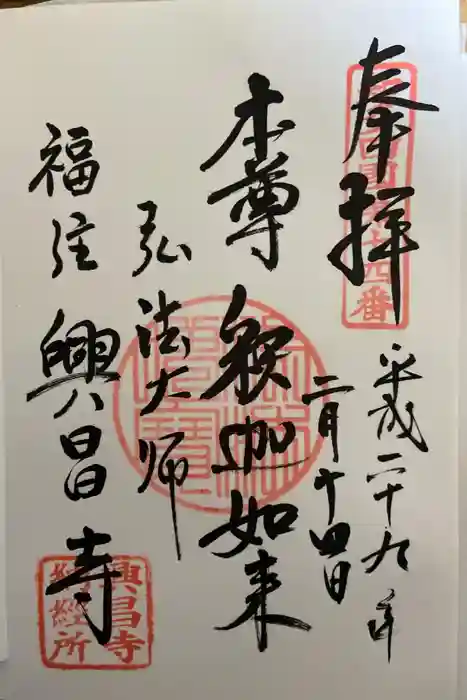 奉拝
十四番
平成二十九年
二月十四日
本尊 釈迦如来
弘法大师
福住 興昌寺
興昌寺
納経所